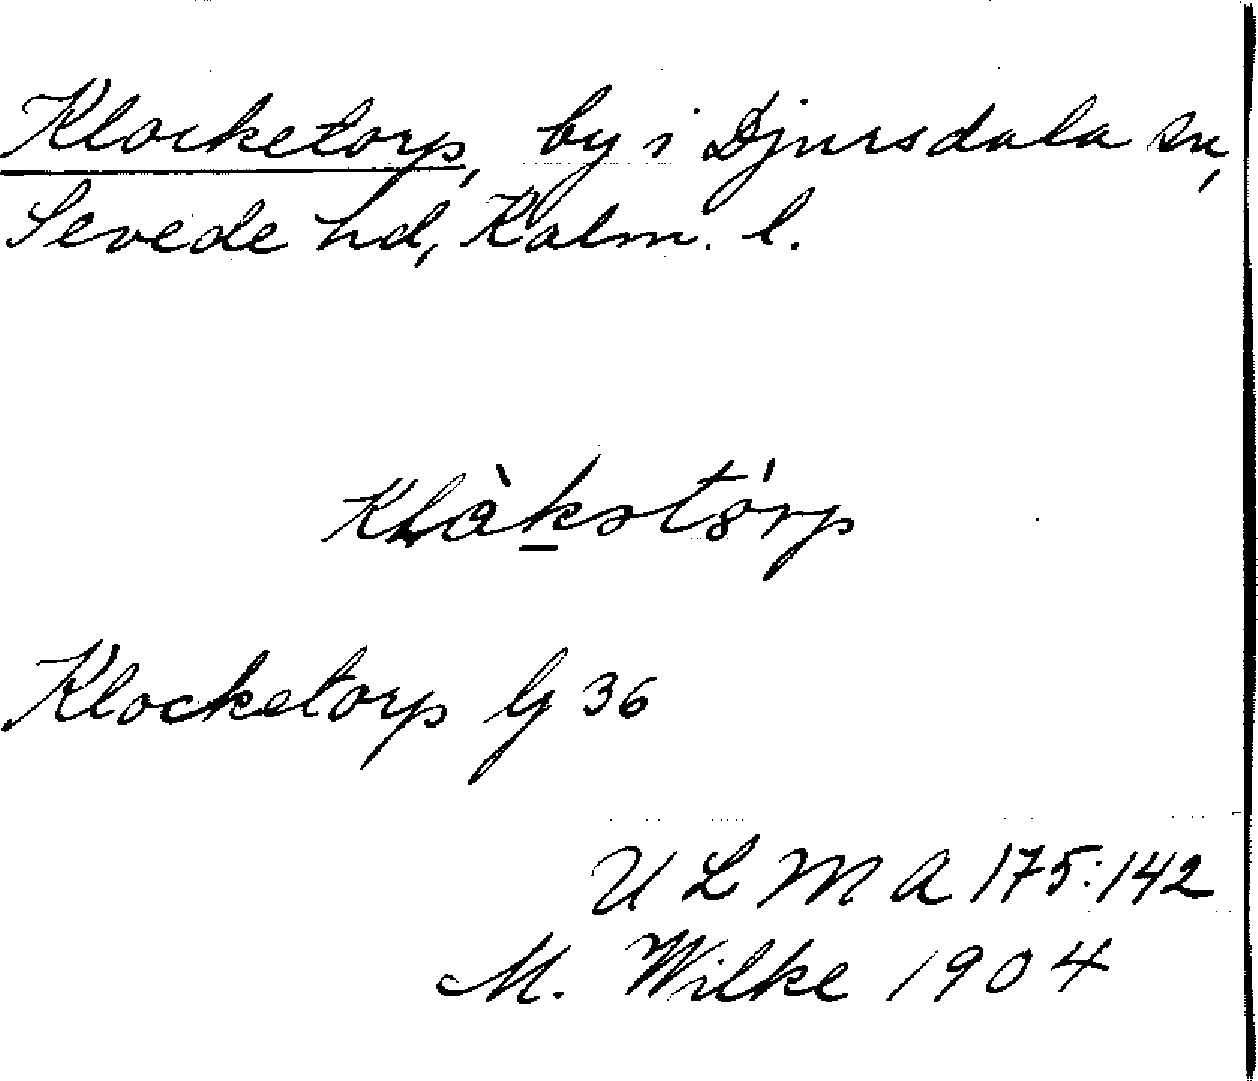 Klocketorp, by i Djursdala sn,
Sevede hd, Kalm. l.
Klàkstórp
Klocketorp lj 36
U L M A 175:142
M. Wilke 1904